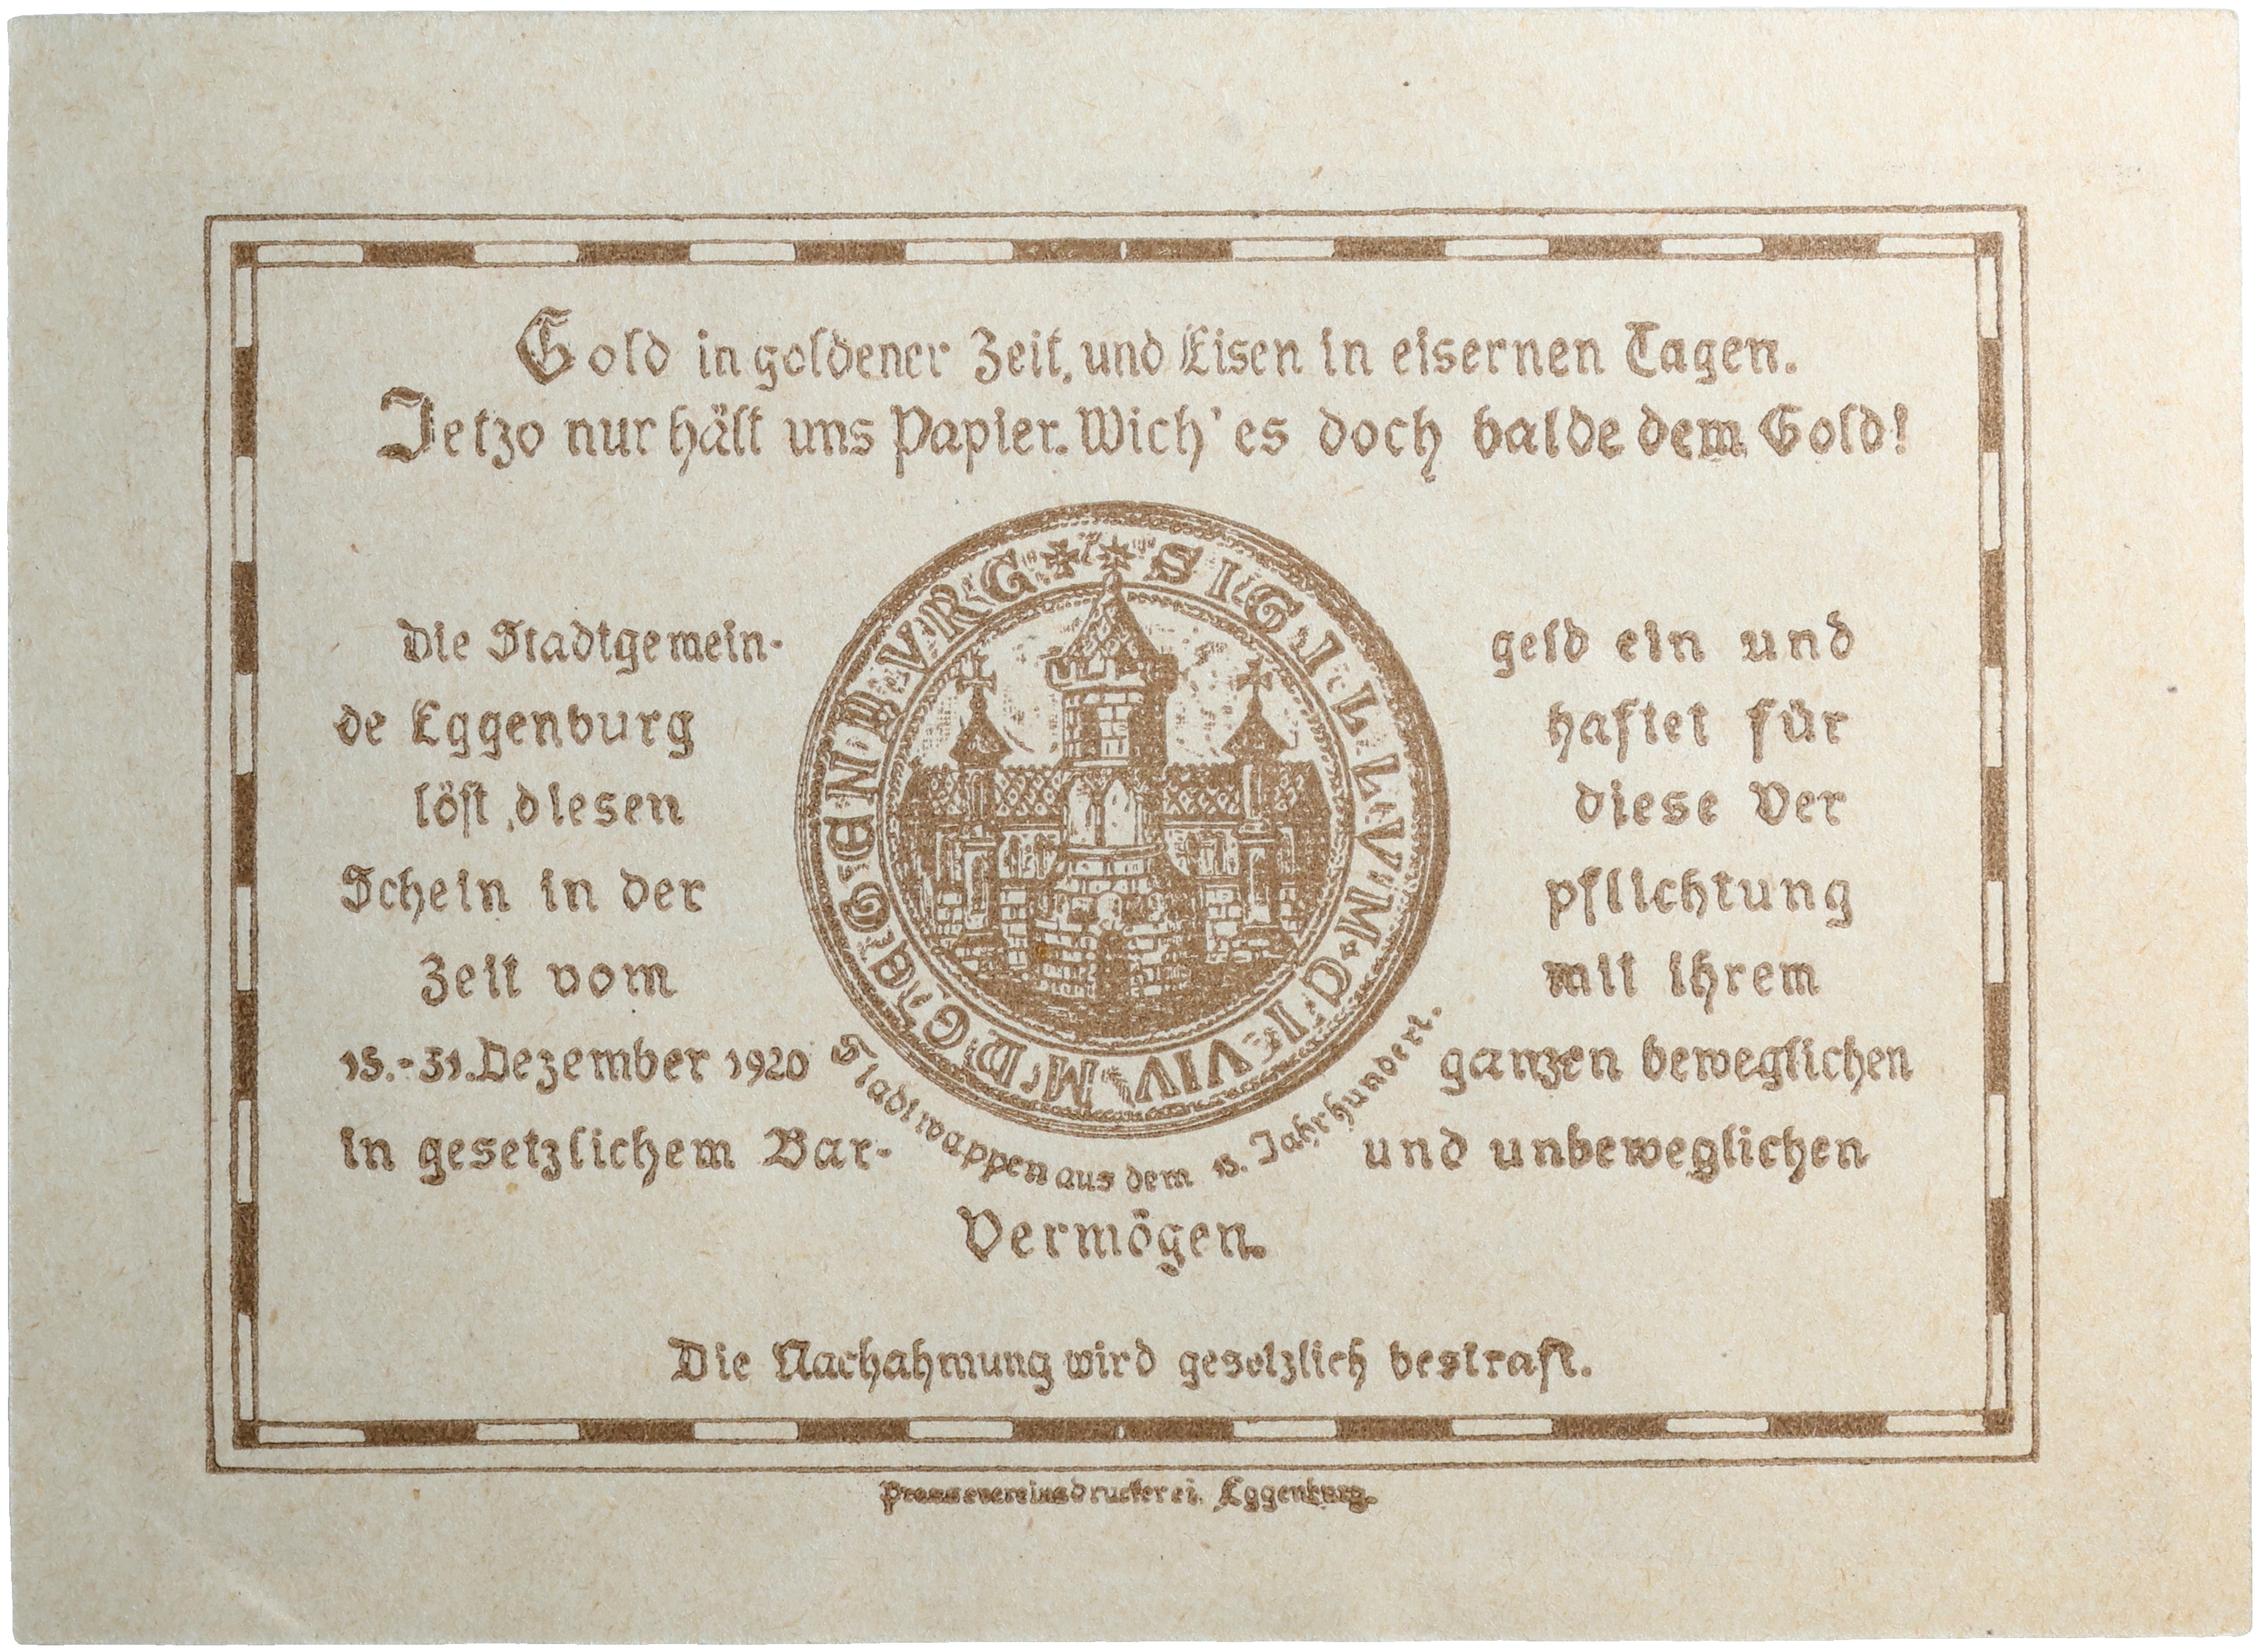 Gold in goldener Zeit, und Eisen in eisernen Tagen.
Jetzo nur hält uns Papier. Wich' es doch balde dem Gold!
Die Stadtgemein-
de Eggenburg
löst diesen
Schein in der
Zeit vom
15.-31. Dezember 1920
in gesetzlichem Bar-
geld ein und
haftet für
diese Ver
pflichtung
mit ihrem
ganzen beweglichen
und unbeweglichen
Vermögen.
SIGILLVM · CIVIVM DC EGGENBVRG
Stadtwappen aus dem 15. Jahrhundert.
Die Nachahmung wird gesetzlich bestraft.
Pressevereinsdruckerei, Eggenburg.